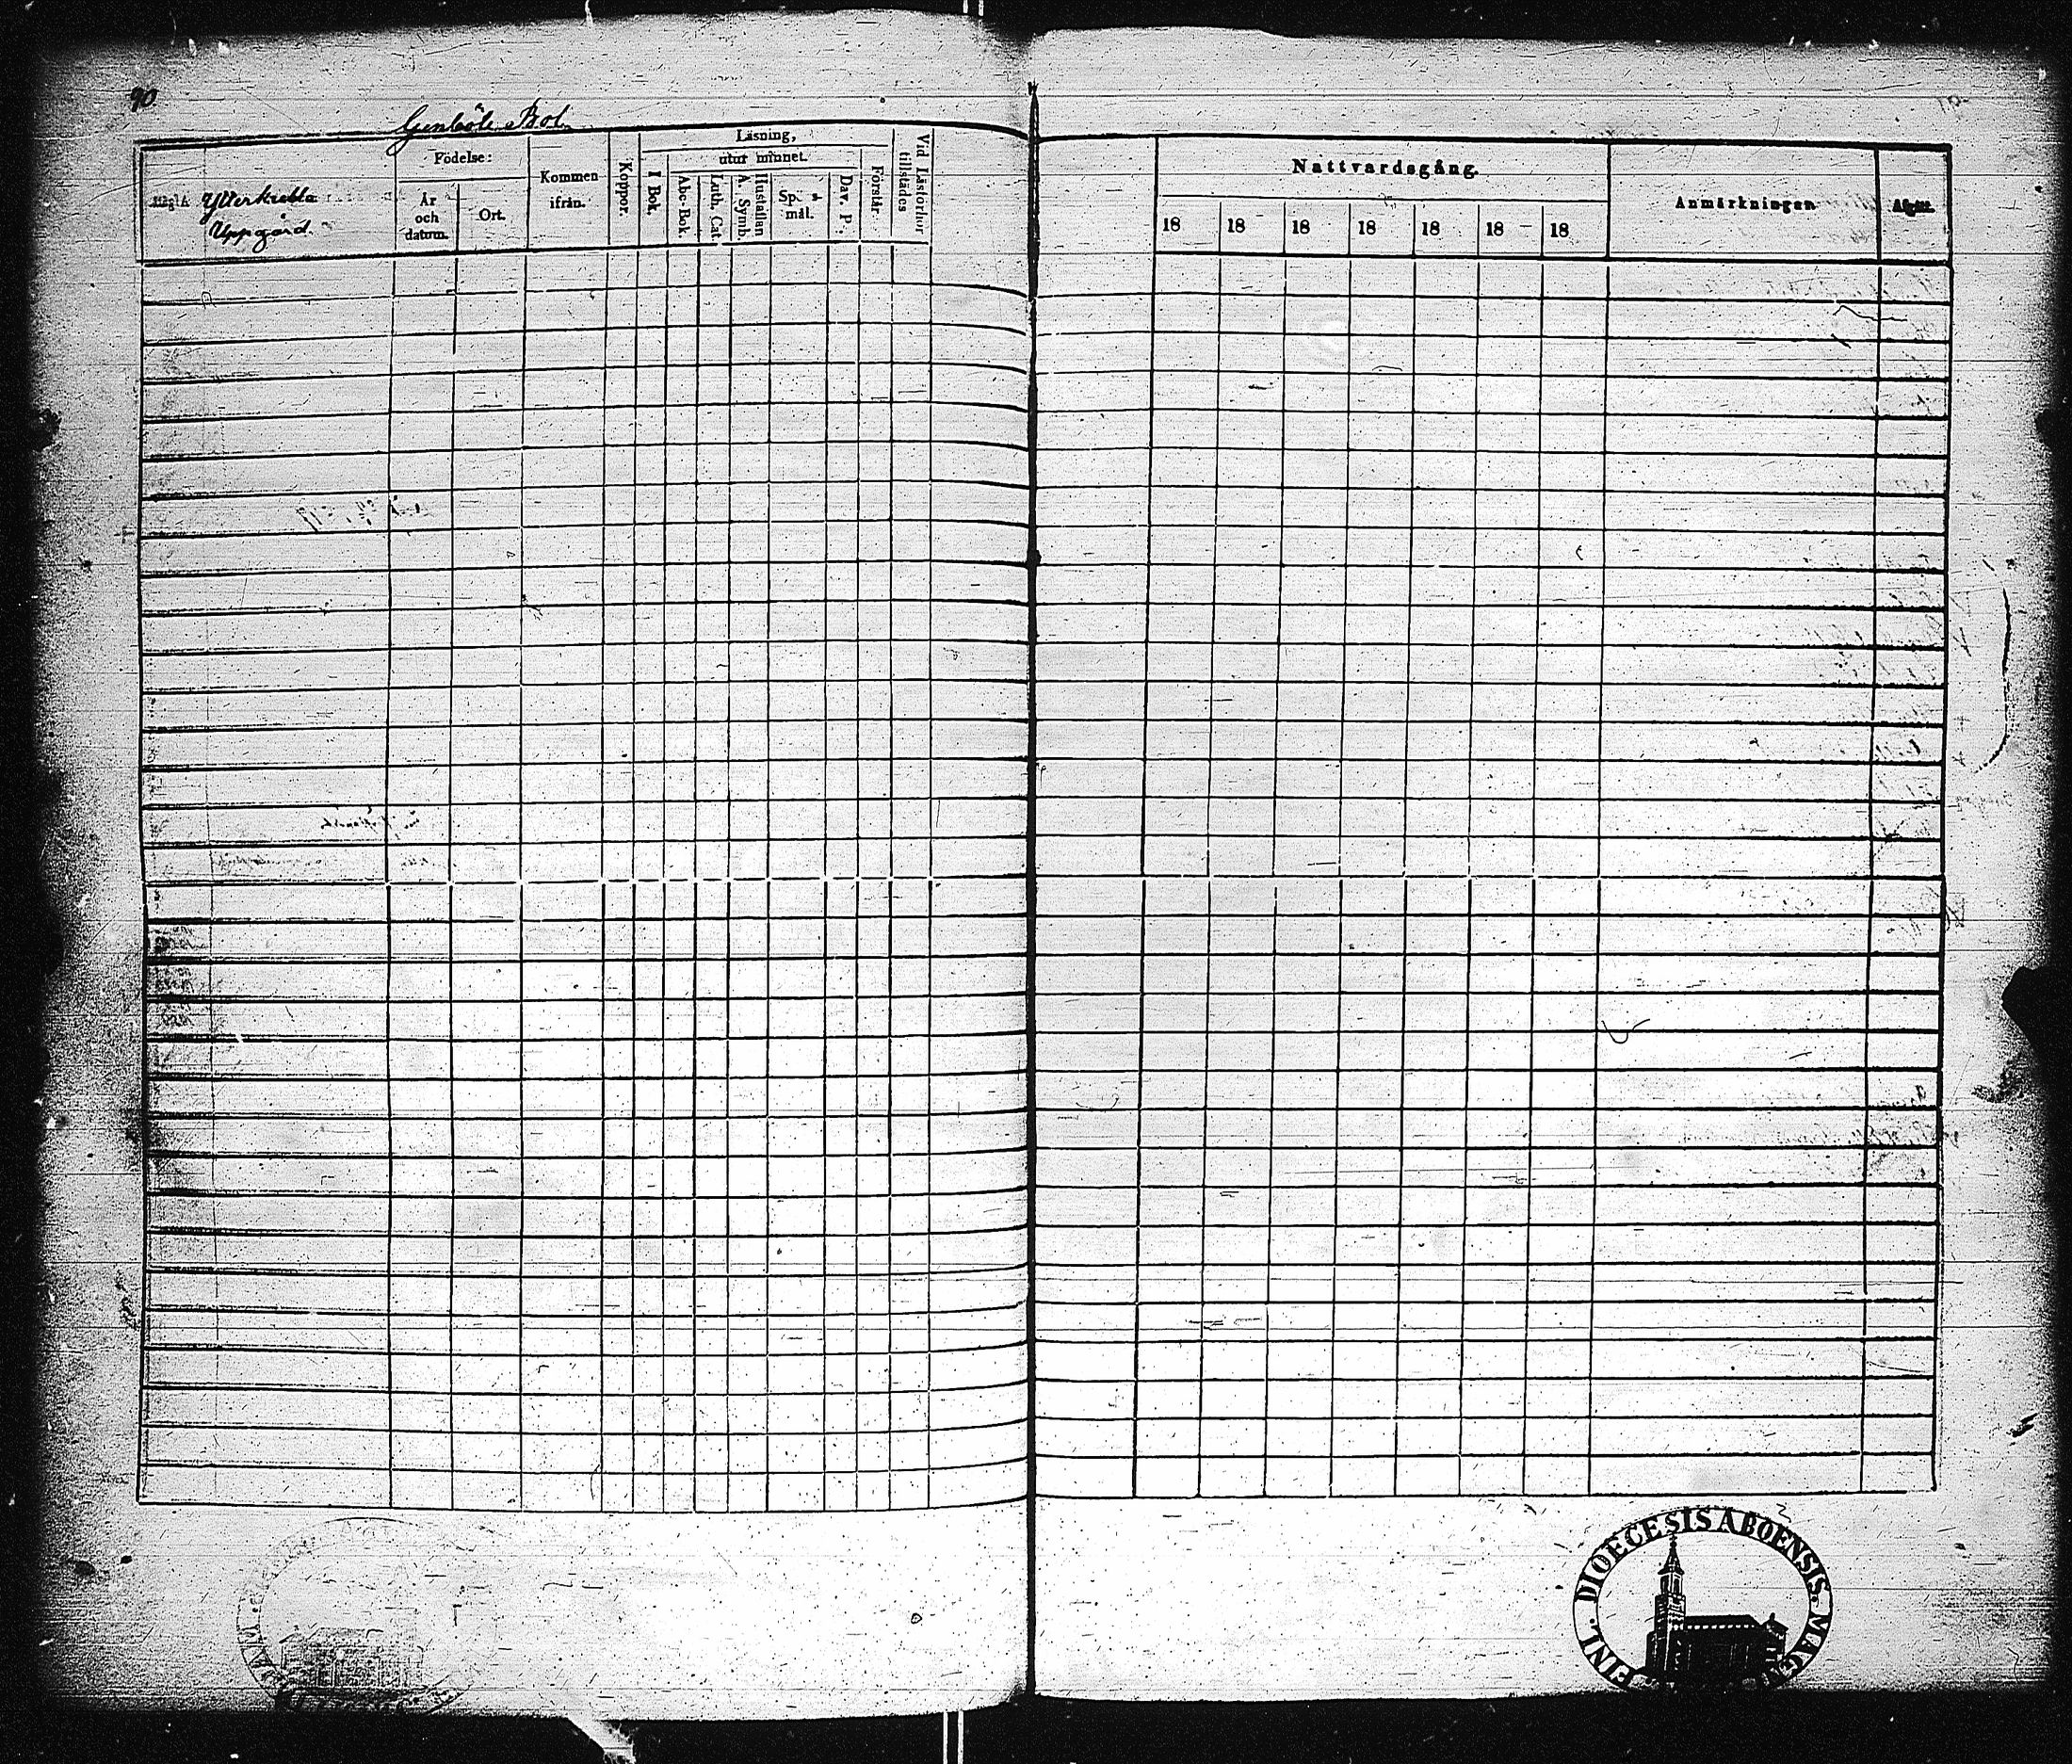 90
Genböle Bol.
Ytterkrebla
Uppgård.
Födelse:
År
och
datum.
Ort.
Kommen
ifrån.
Koppor.
Läsning,
utur minnet.
I Bok.
Abc-Bok.
Luth. Cat.
Hustaflan
A. Symb.
mål.
Dav. P.
Förstår.
Vid Läsförhör
tillstädes
Nattvardsgång.
18 18 18 18 18 18 18
Anmärkningar.
Afgått.
FINL. DIOECESIS ABOENSIS. MAGN